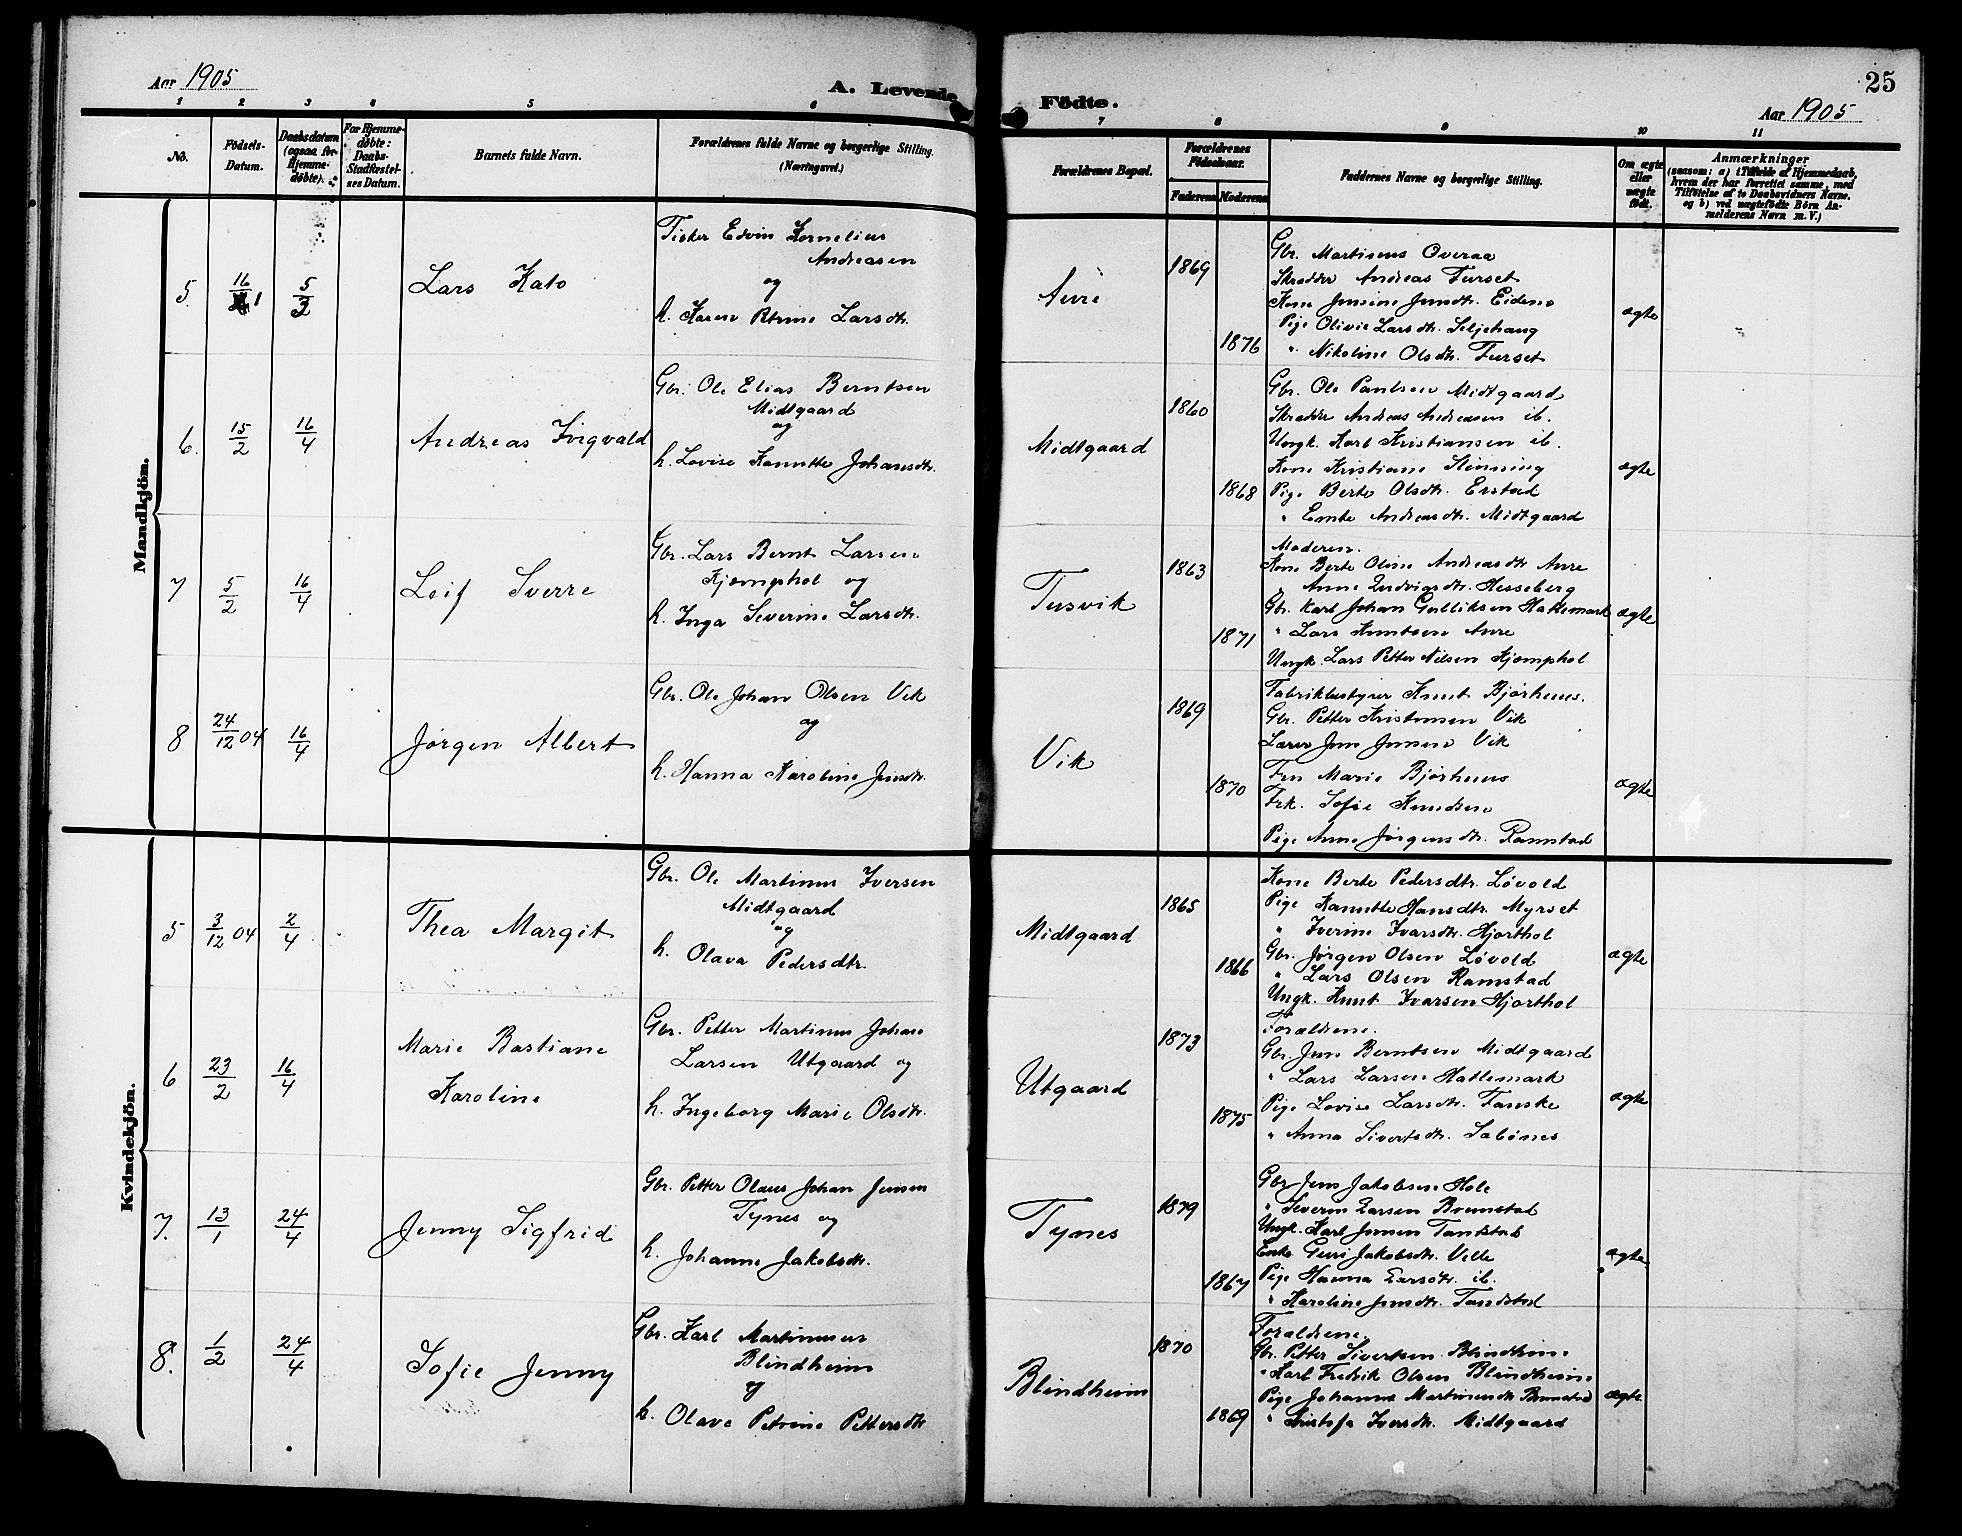 Aar 1905
A. Levende Födte.
25
Aar 1905
1 2 3 4 5 6 7 8 9 10 11
No.
Födsels-
Datum.
Daabsdatum
(ogsaa for
Hjemme-
döbte).
For Hjemme-
döbte:
Daabs-
Stadfæstel-
ses Datum.
Barnets fulde Navn.
Forældrenes fulde Navne og borgerlige Stilling.
(Næringsvei.)
Forældrenes Bopæl.
Forældrenes
Födselsaar.
Faderens
Moderens
Faddernes Navne og borgerlige Stilling.
Om ægte
eller
uægte
födt.
Anmærkninger
(saasom: a) i Tilfælde af Hjemmedaab,
hvem der har forrettet samme, med
Tilföielse af to Daabsvidners Navne,
og b) ved uægtefödte Börn An-
melderens Navn m. V.)
Mandkjön.
5.
16
1
5
3
Lars Kato
Fisker Edvin Kornelius
Andreasen
og
h. Karen Petrine Larsdtr.
Aure
1869
1876
Gbr. Martinus Overaa
Skrædder Andreas Furset
Kone Jensine Jensdtr. Eidem
Pige Olivie Larsdtr. Seljehaug
" Nikoline Olsdtr. Furset
ægte
6.
15
2
16
4
Andreas Ingvald
Gbr. Ole Elias Berntsen
Midtgaard
og
h. Lovise Kanutte Johansdtr.
Midtgaard
1860
1868
Gbr. Ole Paulsen Midtgaard
Skrædder Andreas Andreasen ib.
Ungk. Karl Kristiansen ib.
Kone Kristiane Slinning
Pige Berte Olsdtr. Erstad
" Emte Andreasdtr. Midtgaard
ægte
7
5
2
16
4
Leif Sverre
Gbr. Lars Bernt Larsen
Kjæmphol og
h. Inga Severine Larsdtr.
Tusvik
1863
1871
Moderen.
Kone Berte Oline Andreasdtr Aure
" Anne Ludvigsdtr. Hesseberg
Gbr. Karl Johan Gulliksen Hatlemark
" Lars Knutsen Aure
Ungk. Lars Petter Nilsen Kjæmphol
ægte
8
24
12 04
16
4
Jørgen Albert
Gbr. Ole Johan Olsen Vik
og
h. Hanna Karoline Jensdtr.
Vik
1869
1870
Fabrikbestyrer Knut Bjørhuus.
Gbr. Petter Kristensen Vik
Lærer Jens Jensen Vik
Fru Marie Bjørhuus
Frk. Sofie Knudsen
Pige Anne Jørgensdtr. Ramstad
ægte
Kvindekjön.
5
3
12 04
2
4
Thea Margit
Gbr. Ole Martinus Iversen
Midtgaard
og
h. Olava Pedersdtr.
Midtgaard
1865
1866
Kone Berte Pedersdtr. Løvold
Pige Kanutte Hansdtr. Myrset
" Iverine Ivarsdtr. Hjorthol
Gbr. Jørgen Olsen Løvold
" Lars Olsen Ramstad
Ungk. Knut Ivarsen Hjorthol
ægte
6
23
2
16
4
Marie Bastiane
Karoline
Gbr. Petter Martinus Johan
Larsen Utgaard og
h. Ingeborg Marie Olsdtr.
Utgaard
1873
1875
Forældrene.
Gbr. Jens Berntsen Midtgaard
" Lars Larsen Hatlemark
Pige Lovise Larsdtr. Fauske
" Anna Sivertsdtr. Sæbønes
ægte
7.
13
1
24
4
Jenny Sigfrid
Gbr. Petter Olaus Johan Jensen
Tynes og
h. Johanne Jakobsdtr.
Tynes
1879
1867
Gbr Jens Jakobsen Hole
" Severin Larsen Brunstad
Ungk. Karl Jensen Tandstad
Enke Guri Jakobsdtr. Velle
Pige Hanna Larsdtr. ib.
" Karoline Jensdtr. Tandstad
ægte
8.
1
2
24
4
Sofie Jenny
Gbr. Karl Martinusen
Blindheim
og
h. Olave Petrine Pettersdtr
Blindheim
1870
1869
Forældrene.
Gbr. Petter Sivertsen Blindheim
" Karl Fredrik Olsen Blindheim
Pige Johanne Martinusdtr Brunstad
" Kristofa Iversdtr. Midtgaard
ægte